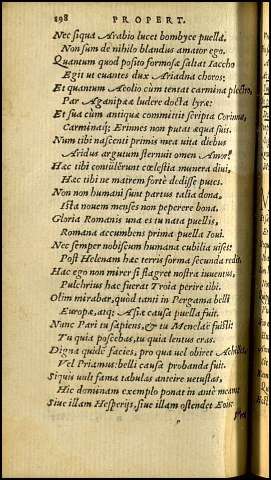 198 PROPERT.
Nec siqua Arabio lucet bombyce puella.
Non sum de nihilo blandus amator ego.
Quantum quod posito formosa saltat Iaccho
Egit ut euantes dux Ariadna choros:
Et quantum Aeolio cùm tentat carmina plectro,
Par Aganipaeae ludere docta lyrae:
Et sua cùm antiquae committit scripta Corinnae,
Carminaq; Erinnes non putat aequa suis.
Num tibi nascenti primis mea uita diebus
Aridus argutum sternuit omen Amor?
Hac tibi contulerunt coelestia munera diui,
Hac tibi ne matrem fortè dedisse putes.
Non non humani sunt partus talia dona,
Ista nouem menses non peperere bona.
Gloria Romanis una es tu nata puellis,
Romana accumbens prima puella Ioui.
Nec semper nobiscum humana cubilia uises:
Post Helenam haec terris forma secunda redit.
Hac ego non mirer si flagret nostra iuuentus,
Pulchrius hac fuerat Troia perire tibi.
Olim mirabar, quòd tanti in Pergama belli
Europae, atq; Asiae causa puella fuit.
Nunc Pari tu sapiens, & tu Menelaë fuisti:
Tu quia poscebas, tu quia lentus eras.
Digna quidē facies, pro qua uel obiret Achilles,
Vel Priamus: belli causa probanda fuit.
Siquis uult fama tabulas anteire uetustas,
Hic dominam exemplo ponat in antè meam:
Siue illam Hesperijs, siue illam ostendet Eois: